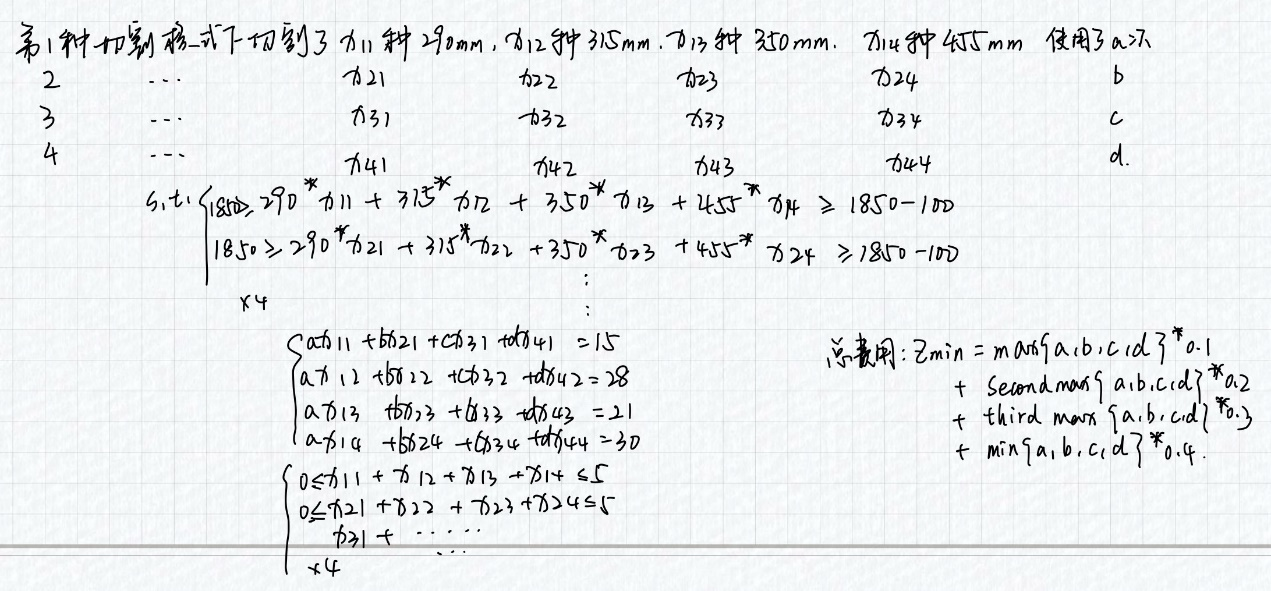 第1种切割格式下切割了 x11种 290mm, x12种 315mm. x13种 350mm. x14种 455mm 使用了a次
2 --- x21 x22 x23 x24 b
3 --- x31 x32 x33 x34 c
4 --- x41 x42 x43 x44 d.
s.t. 1850≥290*x11 + 315*x12 + 350*x13 + 455*x14 ≥ 1850-100
1850≥290*x21 + 315*x22 + 350*x23 + 455*x24 ≥ 1850-100
⋮
x4
ax11 + bx21 + cx31 + dx41 = 15
ax12 + bx22 + cx32 + dx42 = 28
ax13 + bx23 + cx33 + dx43 = 21
ax14 + bx24 + cx34 + dx44 = 30
0≤x11 + x12 + x13 + x14 ≤5
0≤x21 + x22 + x23 + x24≤5
x31 + ......
...
x4
总费用: Zmin = max{a,b,c,d}*0.1
+ second max{a,b,c,d}*0.2
+ third max{a,b,c,d}*0.3
+ min{a,b,c,d}*0.4.